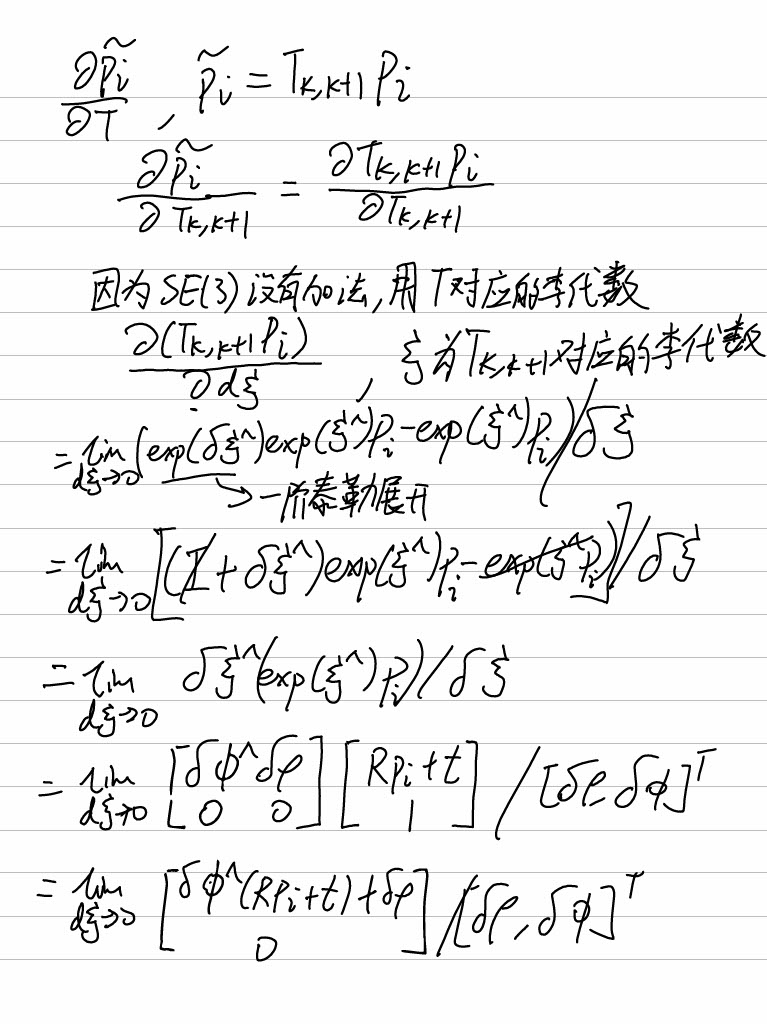 ∂p̃ᵢ/∂T , p̃ᵢ = T_{k,k+1} pᵢ
∂p̃ᵢ/∂T_{k,k+1} = ∂T_{k,k+1} pᵢ/∂T_{k,k+1}
因为 SE(3) 没有加法, 用 T 对应的李代数
∂(T_{k,k+1} pᵢ)/∂dξ , ξ 为 T_{k,k+1} 对应的李代数
= lim_{dξ→0} (exp(δξ^)exp(ξ^)pᵢ - exp(ξ^)pᵢ)/δξ
→ 一阶泰勒展开
= lim_{dξ→0} [(I + δξ^)exp(ξ^)pᵢ - exp(ξ^pᵢ)]/δξ
= lim_{dξ→0} δξ^(exp(ξ^)pᵢ)/δξ
= lim_{dξ→0} [δφ^ δρ; 0 0] [Rpᵢ+t; 1] / [δρ, δφ]ᵀ
= lim_{dξ→0} [δφ^(Rpᵢ+t)+δρ; 0] / [δρ, δφ]ᵀ